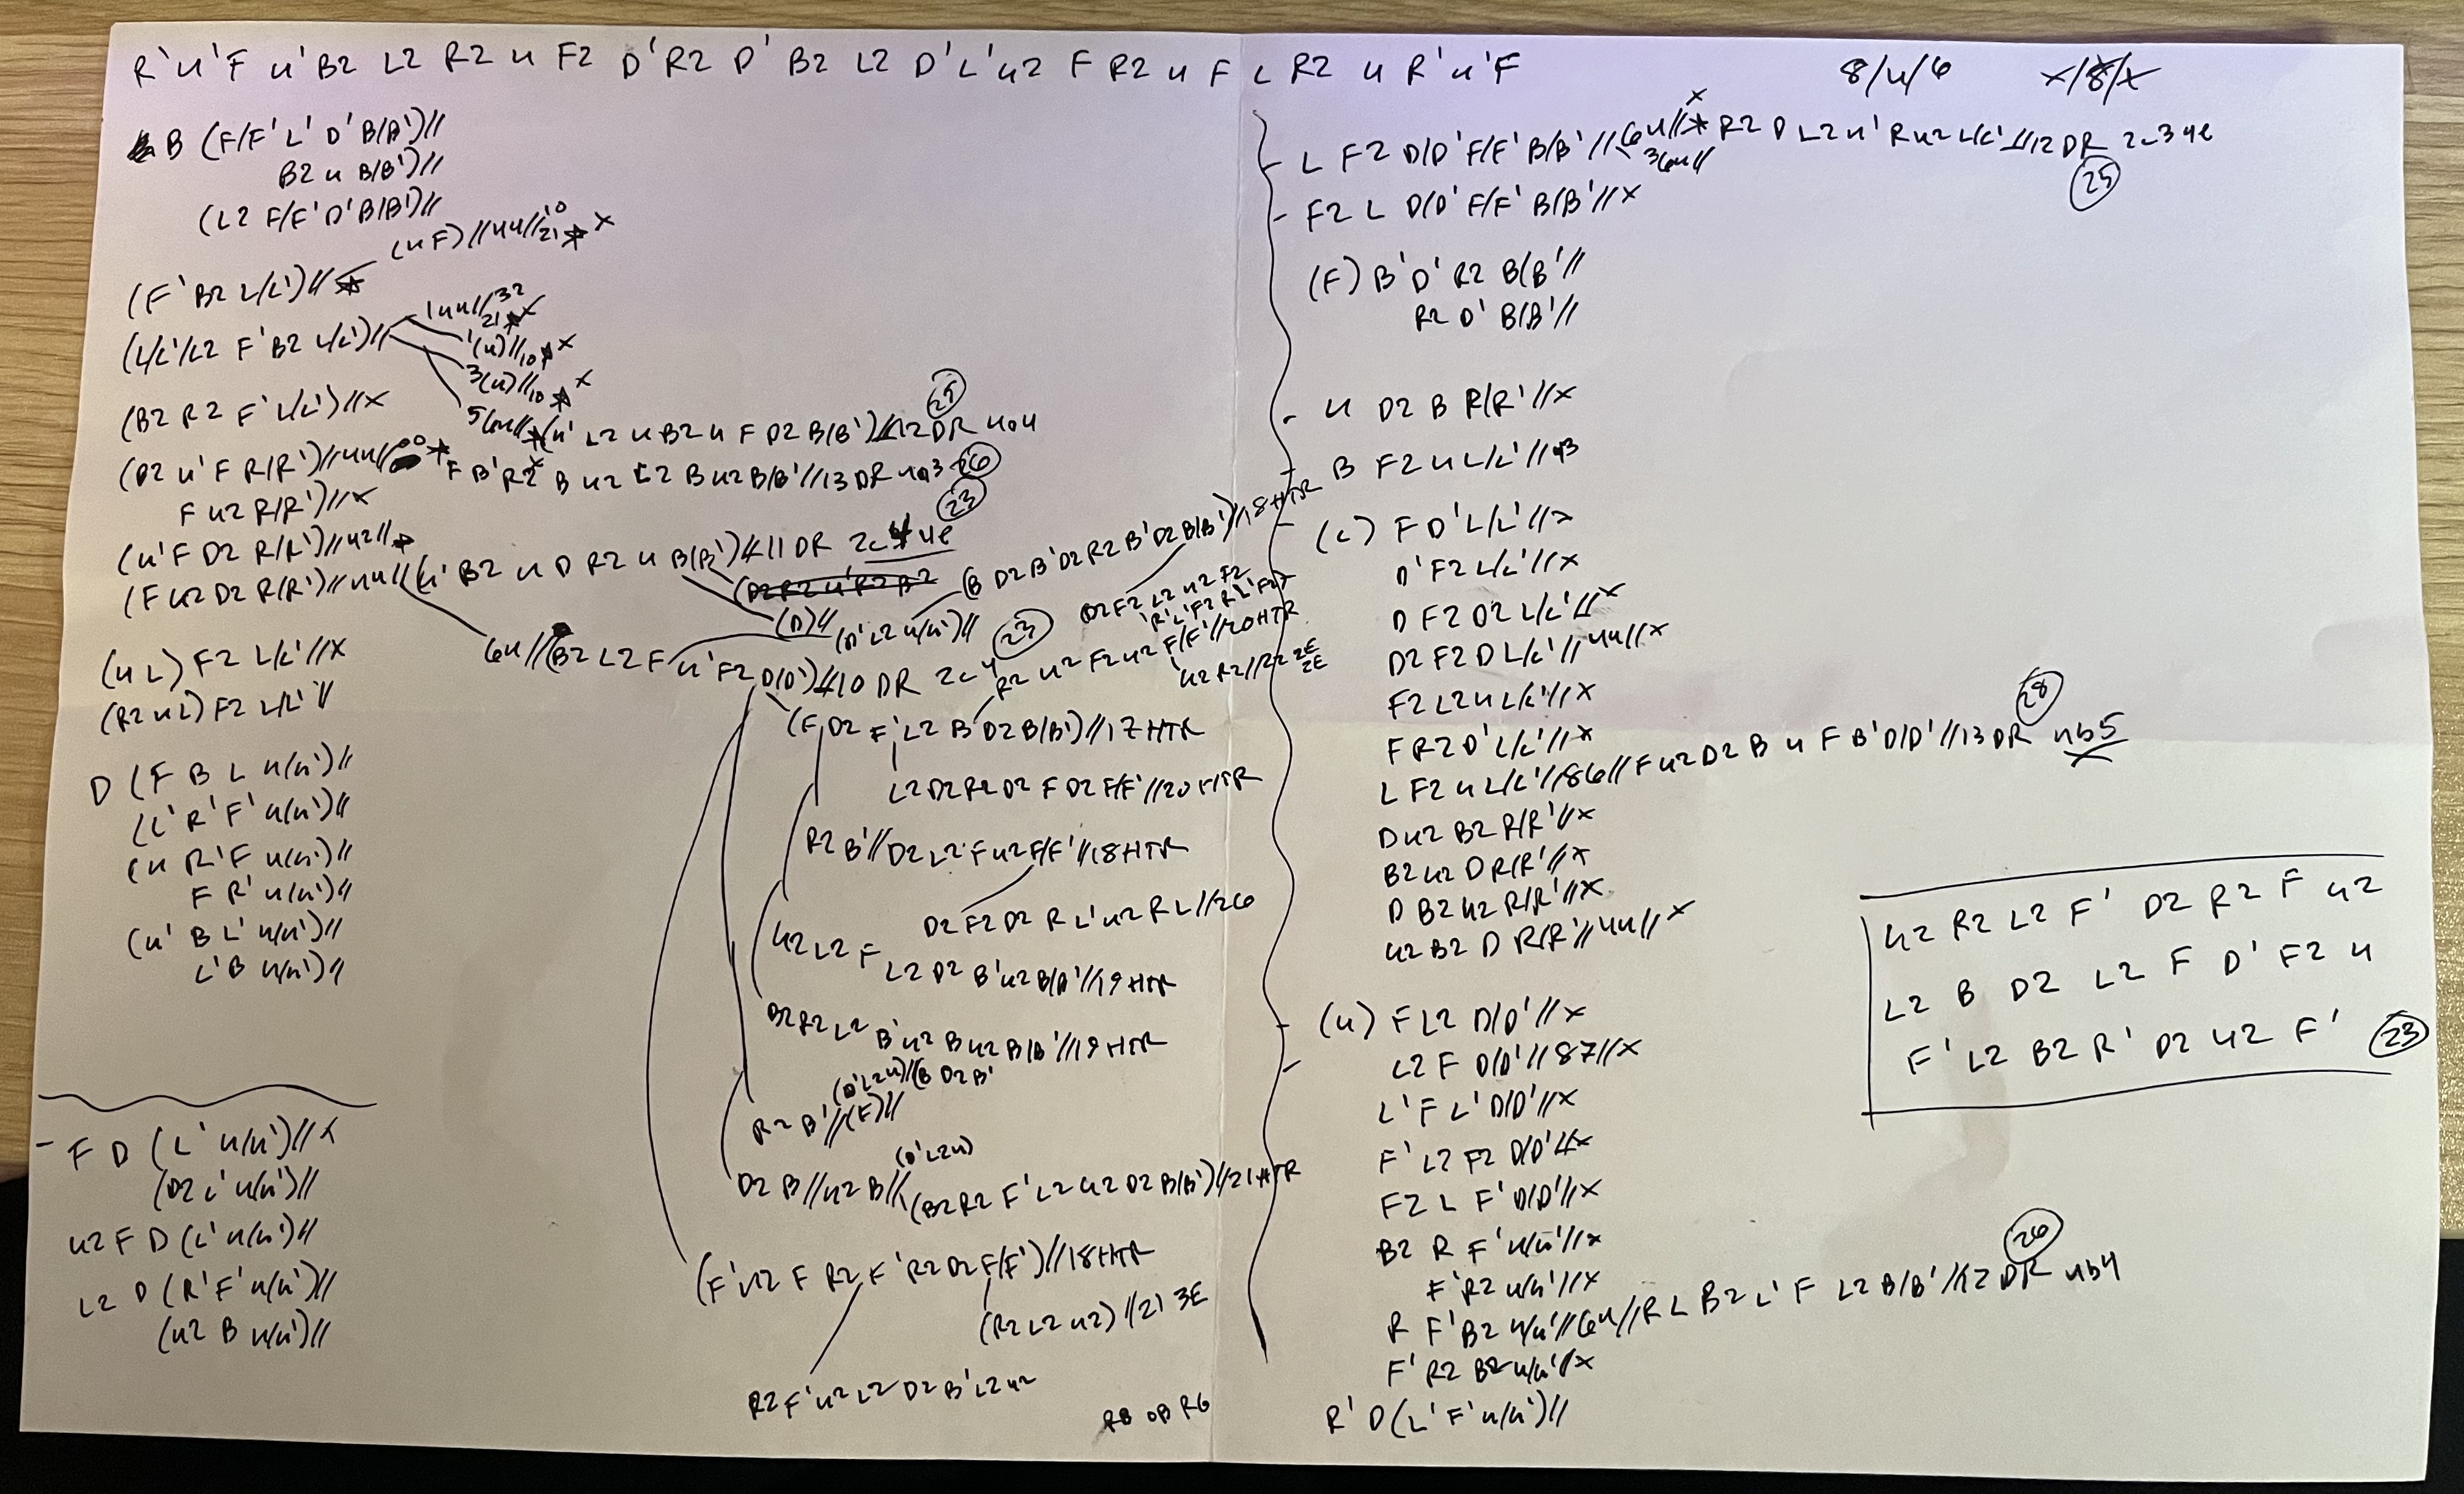 R' u' F u' B2 L2 R2 u F2 D' R2 D' B2 L2 D' L' u2 F R2 u F L R2 u R' u' F
8/4/6 x/8/x
B (F/F' L' D' B/B')//
B2 u B/B')//
(L2 F/F' D' B/B')//
(F' B2 L/L')//
(u F)//4u//10 21 x
(L/L'/L2 F' B2 L/L')//
1 4u//32 21 x
1(u)//10 x
3(u)//10 x
(B2 R2 F' L/L')//x
5 6u// (u' L2 u B2 u F D2 B/B')//12 DR 4a4
(D2 u' F R/R')//4u//00 F B' R2 B u2 L2 B u2 B/B'//13 DR 4a3 26
F u2 R/R')//x
(u' F D2 R/R')//42//
(F u2 D2 R/R')//4u//(u' B2 u D R2 u B/B')//11 DR 2c4 4e
23
(D2 R2 u' R2 B2
(D)//
(D' L2 u/u')//
(B D2 B' D2 R2 B' D2 B/B')//18 HTR
(u L) F2 L/L'//x
6u//(B2 L2 F u' F2 D/D')//10 DR 2c4
23
(R2 u L) F2 L/L'//
R2 u2 F2 u2 F/F'//20 HTR
u2 R2//22 2E 2E
D (F B L u/u')//
(L' R' F' u/u')//
(u R' F u/u')//
F R' u/u')//
(u' B L' u/u')//
L' B u/u')//
(F D2 F' L2 B' D2 B/B')//17 HTR
L2 D2 R2 D2 F D2 F/F'//20 HTR
R2 B'//D2 L2 F u2 F/F'//18 HTR
D2 F2 D2 R L' u2 R L//26
u2 L2 F L2 D2 B' u2 B/B'//19 HTR
B2 R2 L2 B' u2 B u2 B/B'//19 HTR
(D' L2 u)//(B D2 B'
R2 B'//(F)//
(D' L2 u)
D2 B//u2 B//(B2 R2 F' L2 u2 D2 B/B')//21 HTR
(F' u2 F R2 F' R2 D2 F/F')//18 HTR
(R2 L2 u2)//21 3E
R2 F' u2 L2 D2 B' L2 u2
- F D (L' u/u')//x
(D2 L' u/u')//
u2 F D (L' u/u')//
L2 D (R' F' u/u')//
(u2 B u/u')//
- L F2 D/D' F/F' B/B'//6u//x R2 D L2 u' R u2 L/L'//12 DR 2c3 4e
36u//
25
- F2 L D/D' F/F' B/B'//x
(F) B' D' R2 B/B'//
R2 D' B/B'//
- u D2 B R/R'//x
- B F2 u L/L'//
- (L) F D' L/L'//x
D' F2 L/L'//x
D F2 D2 L/L'//x
D2 F2 D L/L'//4u//x
F2 L2 u L/L'//x
F R2 D' L/L'//x
L F2 u L/L'//86//F u2 D2 B u F B' D/D'//13 DR 4b5
28
D u2 B2 R/R'//x
B2 u2 D R/R'//x
D B2 u2 R/R'//x
u2 B2 D R/R'//4u//x
- (u) F L2 D/D'//x
- L2 F D/D'//87//x
L' F L' D/D'//x
F' L2 F2 D/D'//x
F2 L F' D/D'//x
B2 R F' u/u'//x
F' R2 u/u'//x
R F' B2 u/u'//6u//R L B2 L' F L2 B/B'//12 DR 4b4
26
F' R2 B2 u/u'//x
R' D (L' F' u/u')//
u2 R2 L2 F' D2 R2 F u2
L2 B D2 L2 F D' F2 u
F' L2 B2 R' D2 u2 F' 23